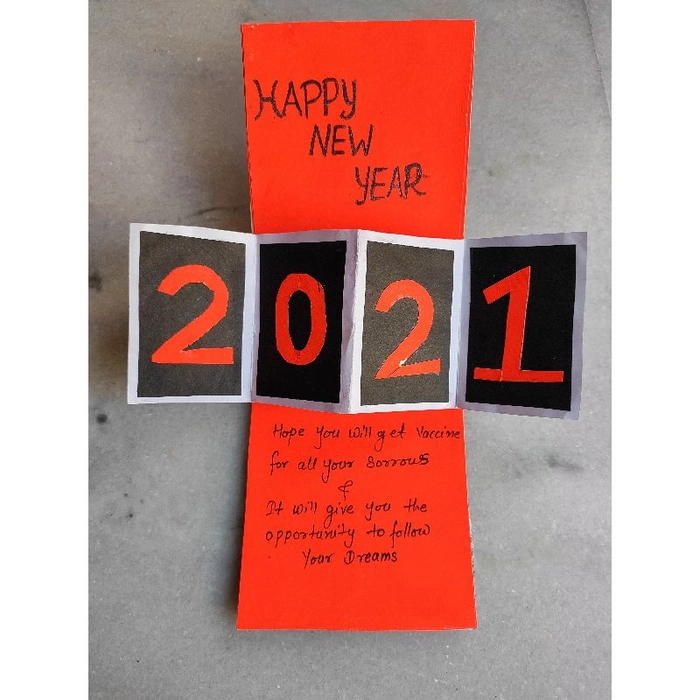 HAPPY
NEW
YEAR
2021
Hope you will get Vaccine
for all your Sorrows
&
It will give you the
opportunity to follow
Your Dreams